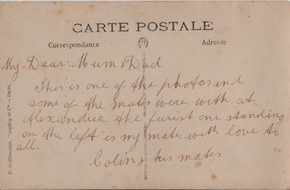 CARTE POSTALE
Correspondance
Adresse
My Dear Mum & Dad
This is one of the photos and
some of the mates were with at
Alexandria the furist one standing
on the left is my mate with love to
all.
Colin & his mates